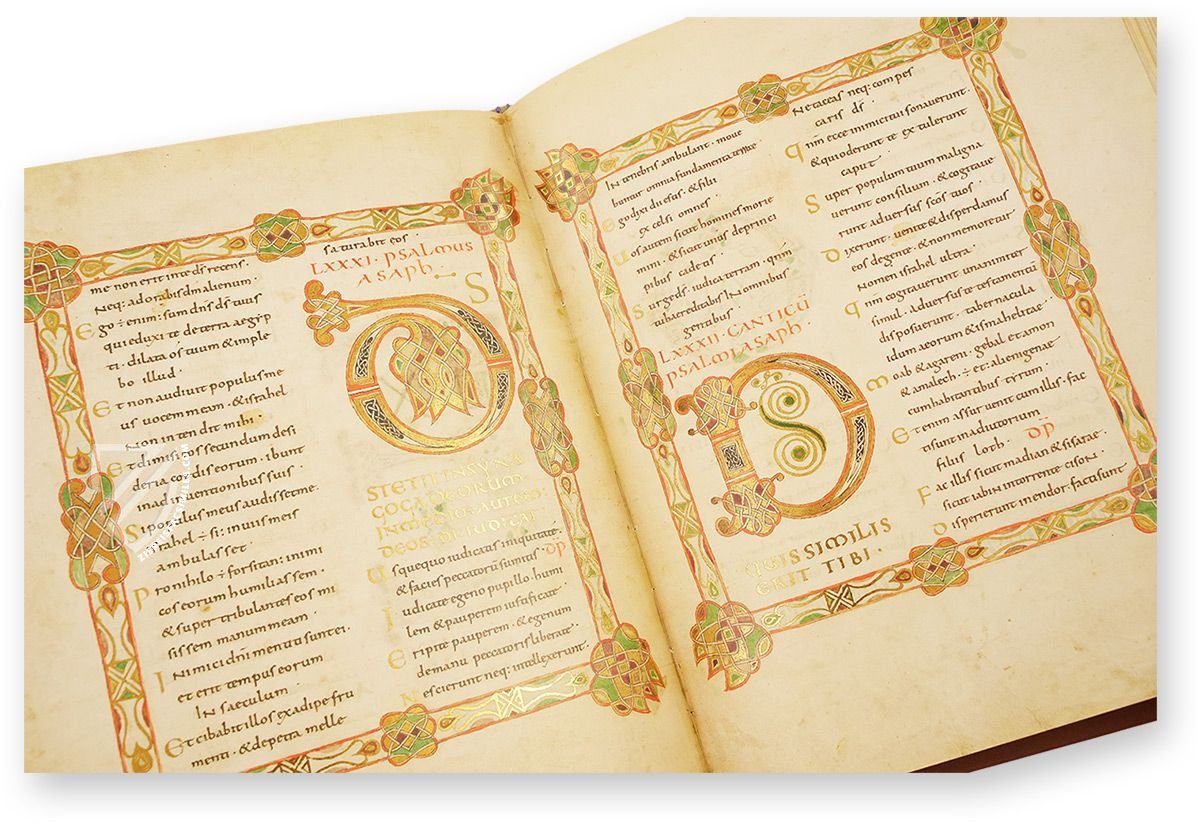 me non erit inte ds recens.
Neq: adorabis dm alienum
Ego ÷ enim: sum dns ds tuus
qui eduxi te de terra aegyp
ti. dilata os tuum & imple
bo illud.
Et non audivit populus me
us vocem meam. & israhel
non intendit mihi
Et dimisi eos secundum desi
deria cordis eorum. ibunt
inadinventionibus suis.
Si populus meus audisset me.
israhel ÷ si: in viis meis
ambulasset
Pro nihilo ÷ forsitan: inimi
cos eorum humiliassem.
& super tribulantes eos mi
sissem manum meam
Inimici dni mentiti sunt ei.
et erit tempus eorum
IN saeculum
Et cibabit illos exadipe fru
menti. & depetra melle
saturabit eos
LXXXI. PSALMUS
ASAPH.
DS
STETIT IN SYNA
GOGA DEORUM
IN MEDIO AUTEM
DEOS DIIUDICAT
Usquequo iudicatis iniquitate.
& facies peccatorum sumitis. DP
Iudicate egeno & pupillo. humi
lem & pauperem iustificate
Eripite pauperem. & egenum
demanu peccatoris liberate.
Nescierunt neq: intellexerunt.
IN tenebris ambulant. move
buntur omnia fundamenta terrae
Ego dixi dii estis. & filii
excelsi omnes
Vos autem sicut homines morie
mini. & sicut unus deprinci
pibus cadetis
Surge ds. iudica terram. qnm
tu hereditabis IN omnibus
gentibus
LXXXII. CANTICU
PSALMI ASAPH.
DS
QUIS SIMILIS
ERIT TIBI.
Ne taceas neq: compes
caris ds.
qnm ecce inimici tui sonaverunt.
& qui oderunt te extulerunt
caput
Super populum tuum maligna
verunt consilium. & cogitave
runt adversus scos tuos
Dixerunt. venite & disperdamus
eos degente. & non memoretur
Nomen israhel ultra.
qnm cogitaverunt unanimiter
simul. adversus te testamentu
disposuerunt. tabernacula
idumaeorum & ismahelitae
Moab & agareni. gebal et amon
& amalech ÷ et: alienigenae
cum habitantibus tyrum.
Etenim assur venit cum illis. fac
ti sunt in adiutorium
filiis loth. DP
Fac illis sicut madian & sisarae.
sicut iabin intorrente cison.
Disperierunt inendor. facti sunt
ZIEREIS FACSIMILES.COM